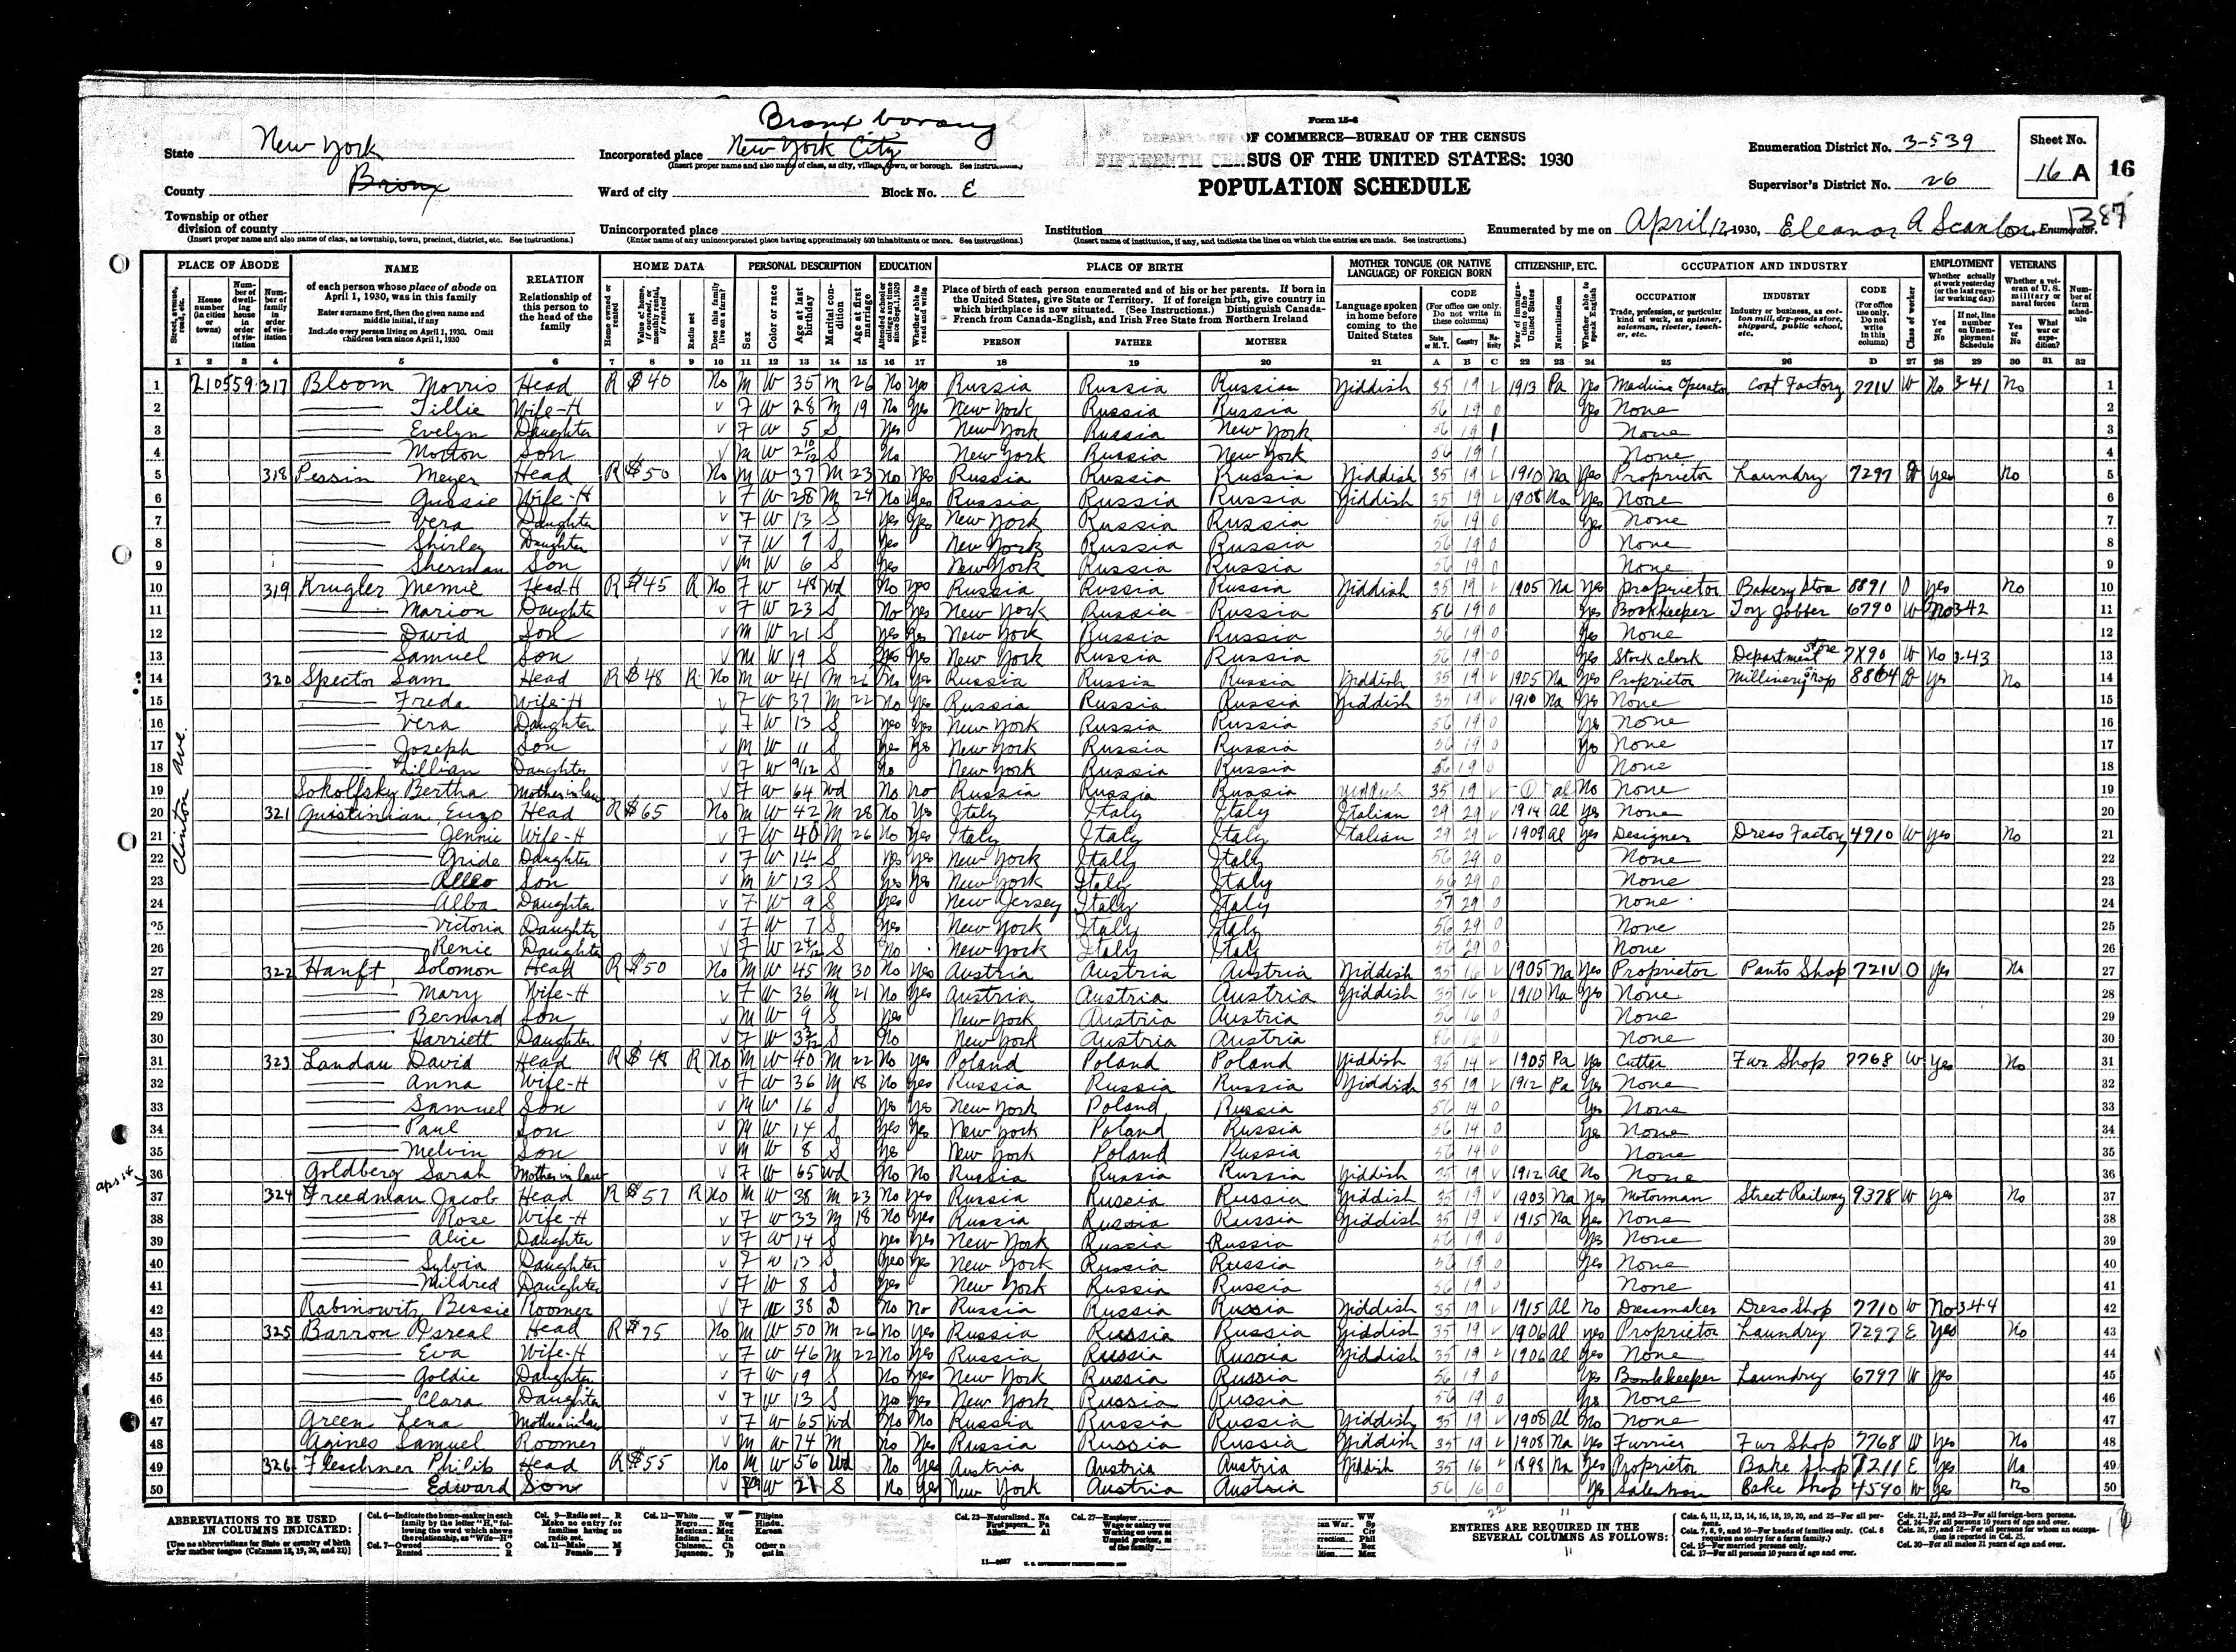 Form 15-6
Bronx borough
State New York
Incorporated place New York City
(Insert proper name and also name of class, as city, village, town, or borough. See instructions.)
DEPARTMENT OF COMMERCE—BUREAU OF THE CENSUS
FIFTEENTH CENSUS OF THE UNITED STATES: 1930
POPULATION SCHEDULE
Enumeration District No. 3-539
Sheet No.
16 A
16
County Bronx
Ward of city
Block No. E
Supervisor's District No. 26
Township or other division of county
(Insert proper name and also name of class, as township, town, precinct, district, etc. See instructions.)
Unincorporated place
(Enter name of any unincorporated place having approximately 500 inhabitants or more. See instructions.)
Institution
(Insert name of institution, if any, and indicate the lines on which the entries are made. See instructions.)
Enumerated by me on April 12, 1930, Eleanor A Scanlon, Enumerator.
PLACE OF ABODE NAME RELATION HOME DATA PERSONAL DESCRIPTION EDUCATION PLACE OF BIRTH MOTHER TONGUE (OR NATIVE LANGUAGE) OF FOREIGN BORN CITIZENSHIP, ETC. OCCUPATION AND INDUSTRY EMPLOYMENT VETERANS
1 2 3 4 5 6 7 8 9 10 11 12 13 14 15 16 17 18 19 20 21 A B C 22 23 24 25 26 D 27 28 29 30 31 32
Clinton Ave.
1 2105 59 317 Bloom Morris Head R $40 No M W 35 M 26 No Yes Russia Russia Russian Yiddish 35 19 V 1913 Pa Yes Machine Operator Coat Factory 7714 W No 3-41 No 1
2 Tillie Wife-H V F W 28 M 19 No Yes New York Russia Russia 56 19 0 Yes None 2
3 Evelyn Daughter F W 5 S Yes New York Russia New York 56 19 1 None 3
4 Morton Son V M W 2 10/12 S No New York Russia New York 56 19 1 None 4
5 318 Pessin Meyer Head R $50 No M W 37 M 23 No Yes Russia Russia Russia Yiddish 35 19 V 1910 Na Yes Proprietor Laundry 7297 Yes No 5
6 Gussie Wife-H V F W 38 M 24 No Yes Russia Russia Russia Yiddish 35 19 V 1908 Na Yes None 6
7 Vera Daughter V F W 13 S Yes Yes New York Russia Russia 56 19 0 Yes None 7
8 Shirley Daughter V F W 9 S Yes New York Russia Russia 56 19 0 None 8
9 Sherman Son V M W 6 S Yes New York Russia Russia 56 19 0 None 9
10 319 Krugler Memie Head-H R $45 R No F W 48 Wd No Yes Russia Russia Russia Yiddish 35 19 V 1905 Na Yes Proprietor Bakery Store 8891 O Yes No 10
11 Marion Daughter V F W 23 S No Yes New York Russia Russia 56 19 0 Yes Bookkeeper Toy Jobber 6790 W No 342 11
12 David Son V M W 21 S Yes Yes New York Russia Russia 56 19 0 Yes None 12
13 Samuel Son V M W 19 S Yes Yes New York Russia Russia 56 19 0 Yes Stock clerk Department store 7X90 W No 3-43 13
14 320 Spector Sam Head R $48 R No M W 41 M 26 No Yes Russia Russia Russia Yiddish 35 19 V 1905 Na Yes Proprietor Millinery Shop 8864 Yes No 14
15 Freda Wife-H V F W 37 M 22 No Yes Russia Russia Russia Yiddish 35 19 V 1910 Na Yes None 15
16 Vera Daughter V F W 13 S Yes Yes New York Russia Russia 56 19 0 Yes None 16
17 Joseph Son V M W 11 S Yes Yes New York Russia Russia 56 19 0 Yes None 17
18 Lillian Daughter V F W 9/12 S No New York Russia Russia 56 19 0 None 18
19 Sokolfsky Bertha Mother in law V F W 64 Wd No No Russia Russia Russia Yiddish 35 19 V Al No None 19
20 321 Guistinian Enzo Head R $65 No M W 42 M 28 No Yes Italy Italy Italy Italian 29 29 V 1914 Al Yes None 20
21 Jennie Wife-H V F W 40 M 26 No Yes Italy Italy Italy Italian 29 29 V 1908 Al Yes Designer Dress Factory 4910 W Yes No 21
22 Gride Daughter V F W 14 S Yes Yes New York Italy Italy 56 29 0 None 22
23 Alleo Son V M W 13 S Yes Yes New York Italy Italy 56 29 0 None 23
24 Alba Daughter V F W 9 S Yes New Jersey Italy Italy 57 29 0 None 24
25 Victoria Daughter V F W 7 S Yes New York Italy Italy 56 29 0 None 25
26 Renie Daughter V F W 2 4/12 S No New York Italy Italy 56 29 0 None 26
27 322 Hanft, Solomon Head R $50 No M W 45 M 30 No Yes Austria Austria Austria Yiddish 35 16 V 1905 Na Yes Proprietor Pants Shop 7214 O Yes No 27
28 Mary Wife-H V F W 36 M 21 No Yes Austria Austria Austria Yiddish 35 16 V 1910 Na Yes None 28
29 Bernard Son V M W 9 S Yes New York Austria Austria 56 16 0 None 29
30 Harriett Daughter V F W 3 3/12 S No New York Austria Austria 56 16 0 None 30
31 323 Landau David Head R $48 R No M W 40 M 22 No Yes Poland Poland Poland Yiddish 35 14 V 1905 Pa Yes Cutter Fur Shop 7768 W Yes No 31
32 Anna Wife-H V F W 36 M 18 No Yes Russia Russia Russia Yiddish 35 19 V 1912 Pa Yes None 32
33 Samuel Son V M W 16 S Yes Yes New York Poland Russia 56 14 0 Yes None 33
34 Paul Son V M W 14 S Yes Yes New York Poland Russia 56 14 0 Yes None 34
35 Melvin Son V M W 8 S Yes New York Poland Russia 56 14 0 None 35
36 Goldberg Sarah Mother in law V F W 65 Wd No No Russia Russia Russia Yiddish 35 19 V 1912 Al No None 36
37 324 Freedman Jacob Head R $57 R No M W 38 M 23 No Yes Russia Russia Russia Yiddish 35 19 V 1903 Na Yes Motorman Street Railway 9378 W Yes No 37
38 Rose Wife-H V F W 33 M 18 No Yes Russia Russia Russia Yiddish 35 19 V 1915 Na Yes None 38
39 Alice Daughter V F W 14 S Yes Yes New York Russia Russia 56 19 0 Yes None 39
40 Sylvia Daughter V F W 13 S Yes Yes New York Russia Russia 56 19 0 Yes None 40
41 Mildred Daughter V F W 8 S Yes New York Russia Russia 56 19 0 None 41
42 Rabinowitz Bessie Roomer V F W 38 D No No Russia Russia Russia Yiddish 35 19 V 1915 Al No Dressmaker Dress Shop 7710 W No 344 42
43 325 Barron Isreal Head R $75 No M W 50 M 26 No Yes Russia Russia Russia Yiddish 35 19 V 1906 Al Yes Proprietor Laundry 7297 E Yes No 43
44 Eva Wife-H V F W 46 M 22 No Yes Russia Russia Russia Yiddish 35 19 V 1906 Al Yes None 44
45 Goldie Daughter V F W 19 S No Yes New York Russia Russia 56 19 0 Yes Bookkeeper Laundry 6797 W Yes 45
46 Clara Daughter V F W 13 S Yes New York Russia Russia 56 19 0 Yes None 46
47 Green Lena Mother in law V F W 65 Wd No No Russia Russia Russia Yiddish 35 19 V 1908 Al No None 47
48 Agines Samuel Roomer V M W 74 M No Yes Russia Russia Russia Yiddish 35 19 V 1908 Na Yes Furrier Fur Shop 7768 W Yes No 48
49 326 Fleschner Philip Head R $55 No M W 56 Wd No Yes Austria Austria Austria Yiddish 35 16 V 1898 Na Yes Proprietor Bake Shop 7211 E Yes No 49
50 Edward Son V M W 21 S No Yes New York Austria Austria 56 16 0 Yes Salesman Bake Shop 4590 W Yes No 50
ABBREVIATIONS TO BE USED IN COLUMNS INDICATED:
ENTRIES ARE REQUIRED IN THE SEVERAL COLUMNS AS FOLLOWS: